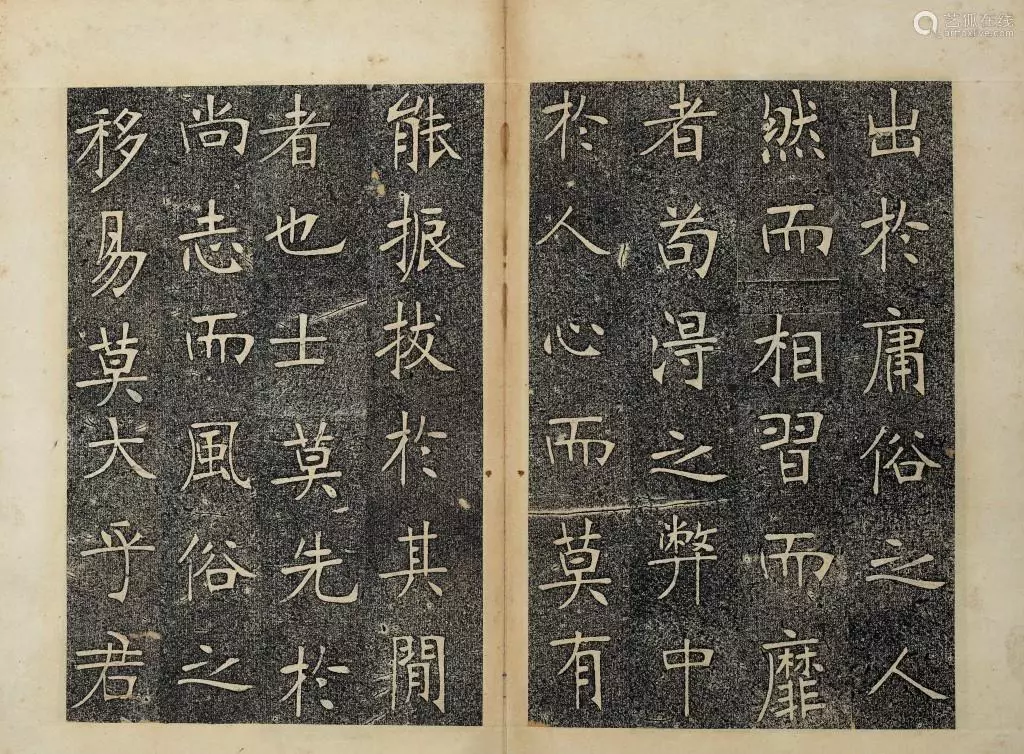 出於庸俗之人
然而相習而靡
者苟淂之弊中
於人心而莫有
能振拔於其閒
者也士莫先於
尚志而風俗之
移易莫大乎君
艺狐在线
artfoxlive.com